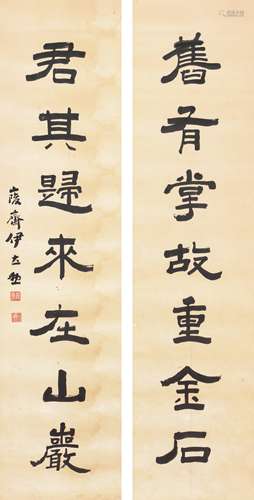 舊有掌故重金石
君其歸來在山巖
峻齋伊立勳